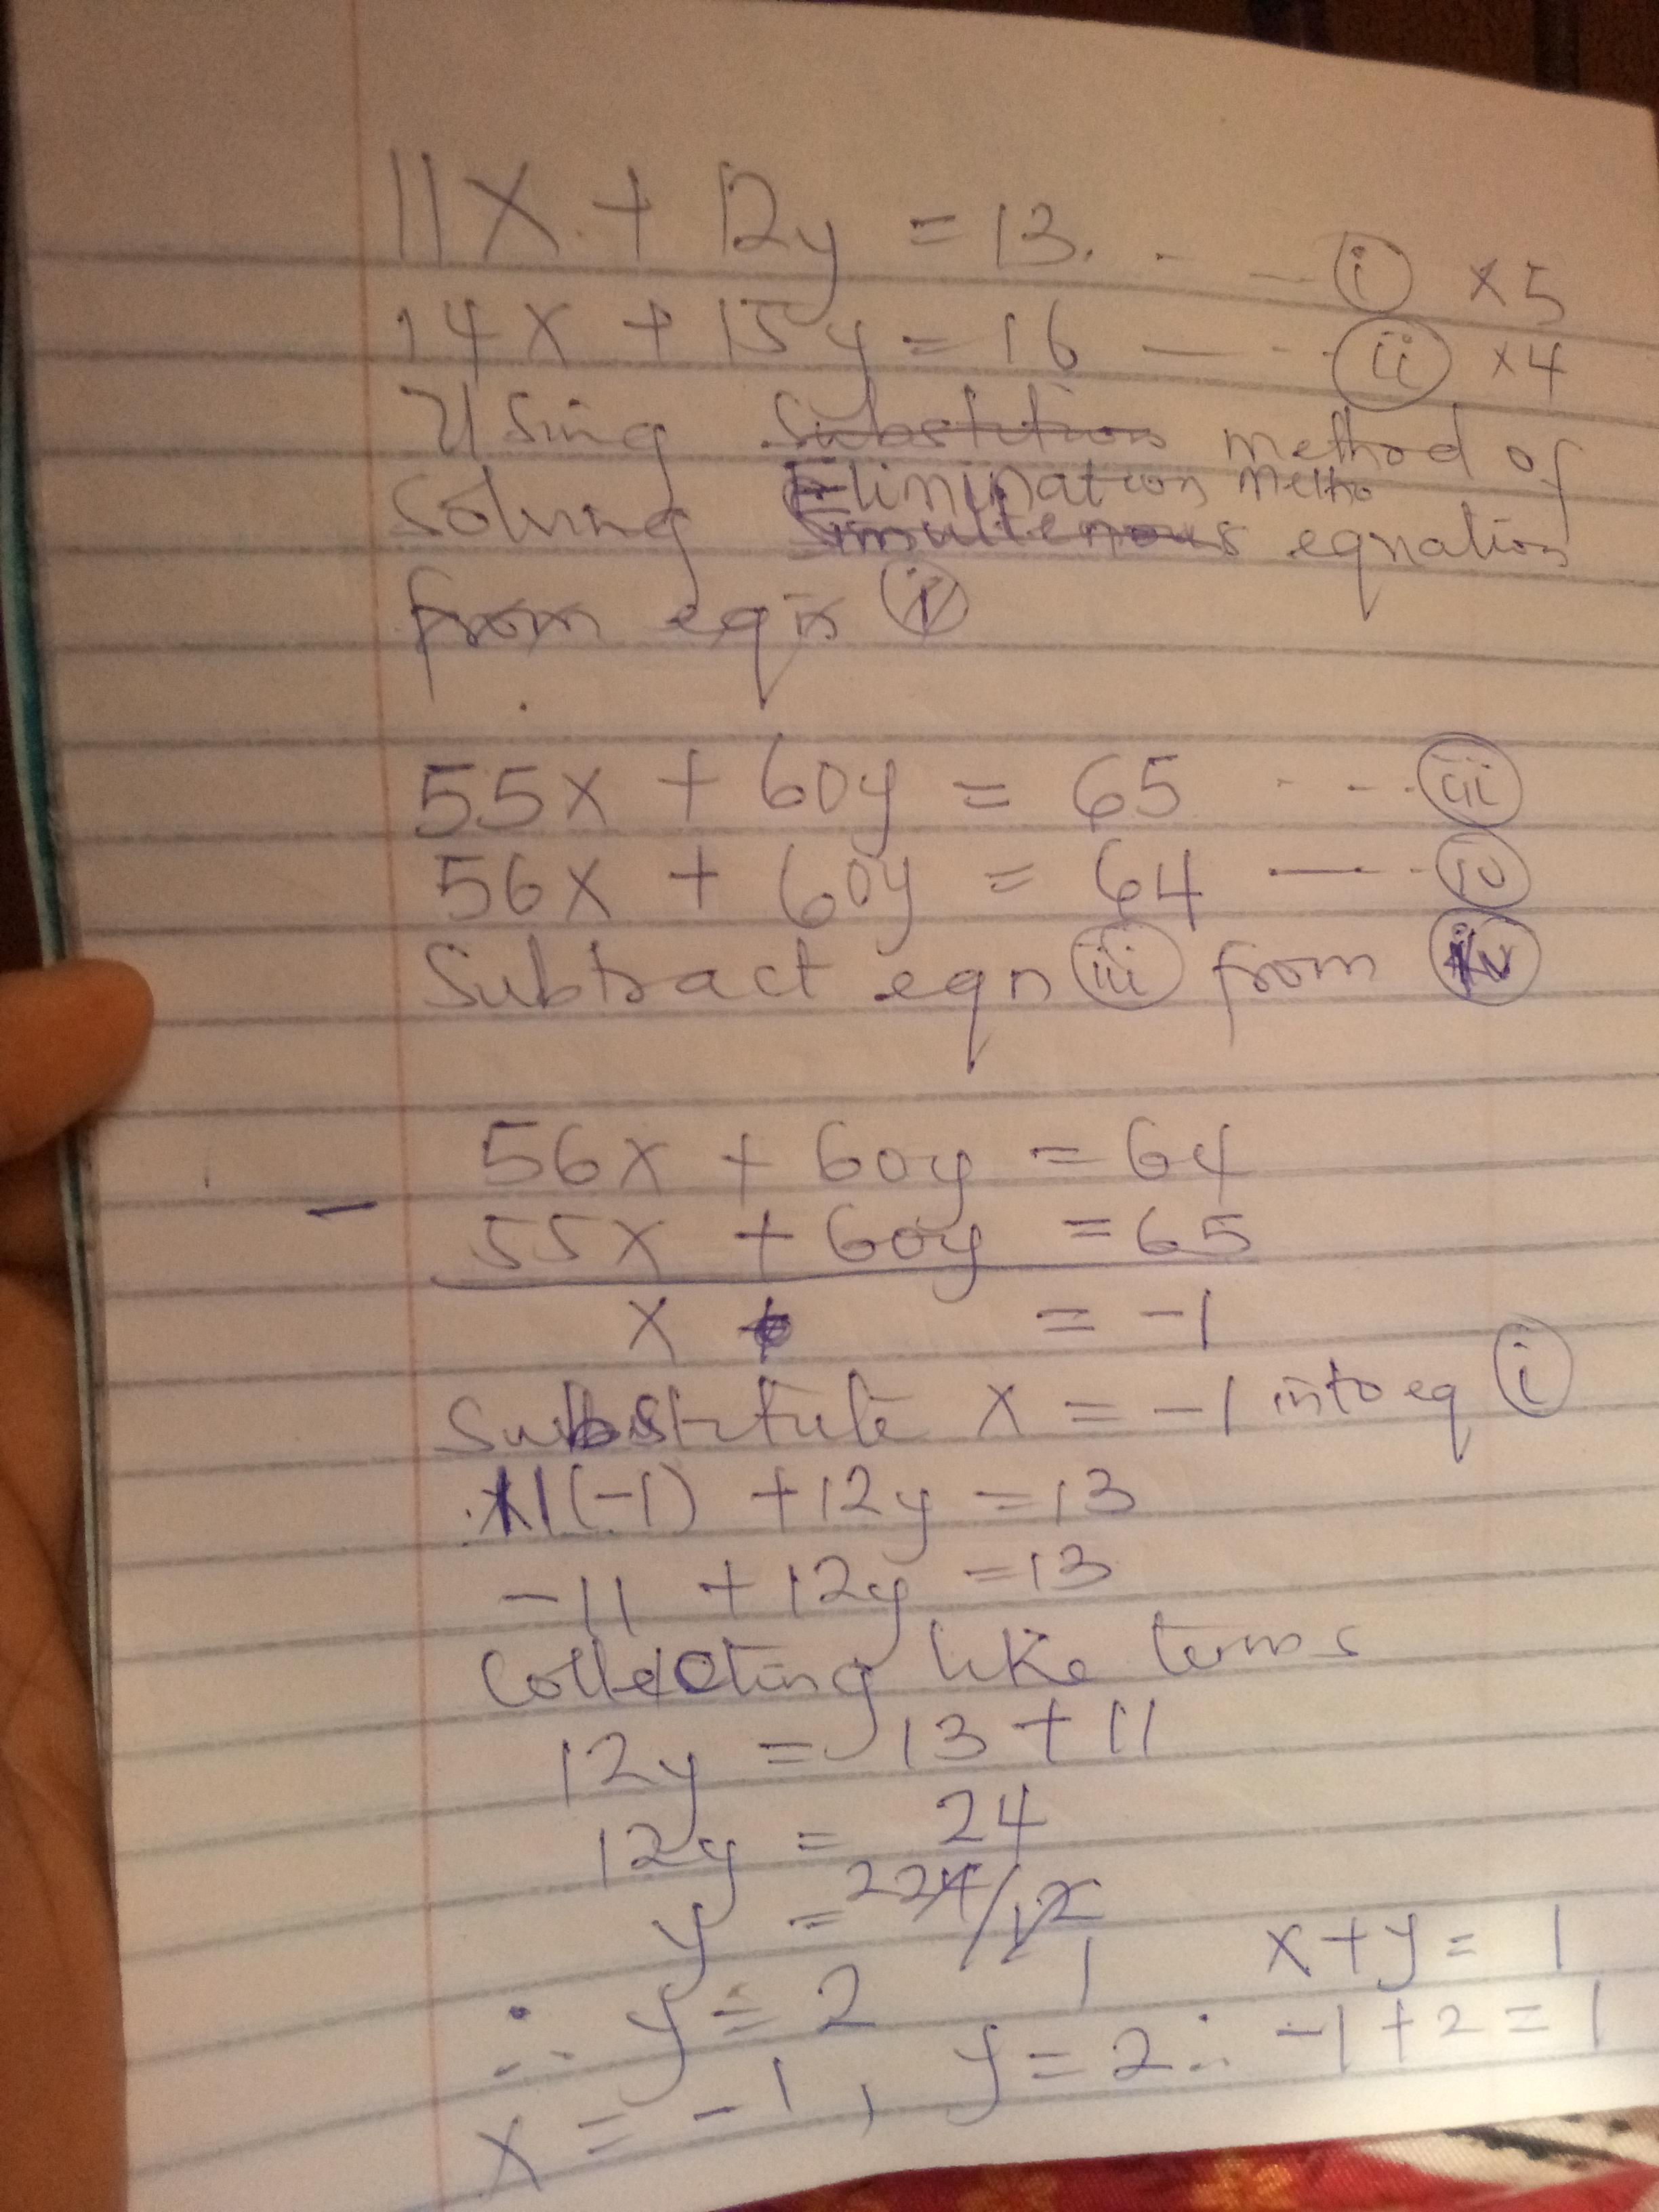 11x + 12y = 13. - - (i) ×5
14x + 15y = 16 - - - (ii) ×4
Using Substition method of
Elimination Metho
Solving Simultenous equation
from eqn (i)
55x + 60y = 65 - - - (iii)
56x + 60y = 64 - - - (iv)
Subtract eqn (iii) from (iv)
56x + 60y = 64
- 55x + 60y = 65
x = -1
Substitute x = -1 into eq (i)
11(-1) + 12y = 13
-11 + 12y = 13
Collecting like terms
12y = 13 + 11
12y = 24
y = 2 24/12 1
x + y = 1
∴ y = 2
x = -1, y = 2 ∴ -1 + 2 = 1